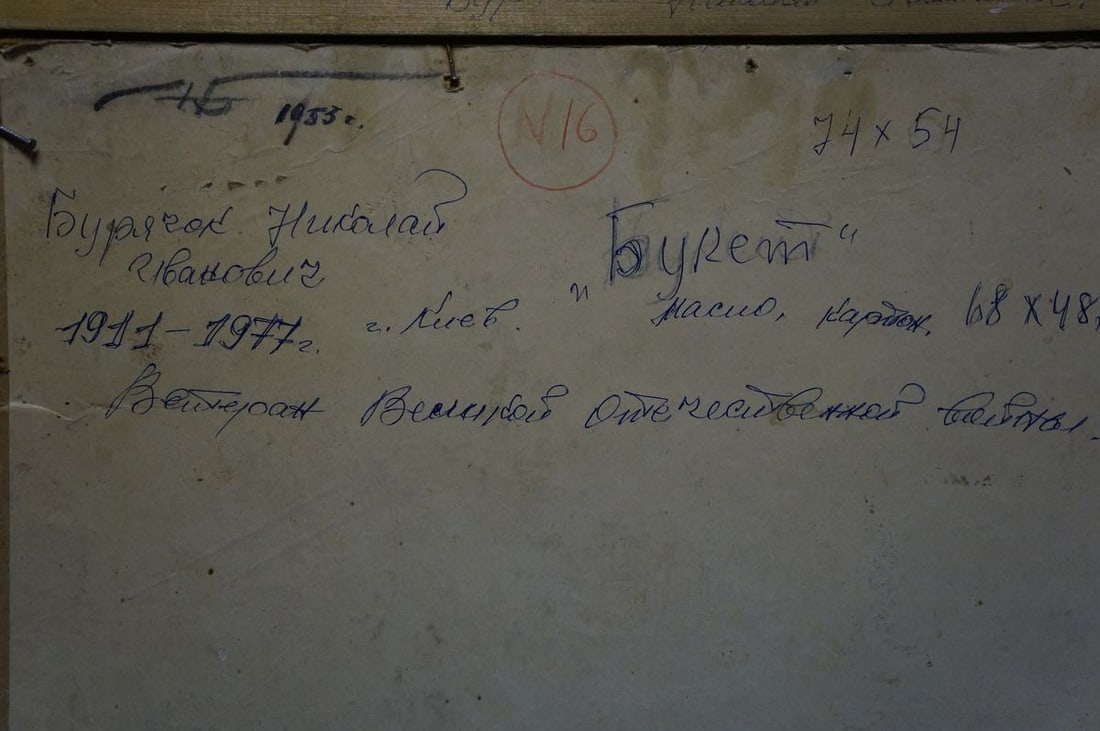 1955г. N16 74 х 54
Бурячок Николай „Букет“
Иванович
1911 – 1977г. г. Киев. масло, картон, 68 х 48
Ветеран Великой Отечественной войны.